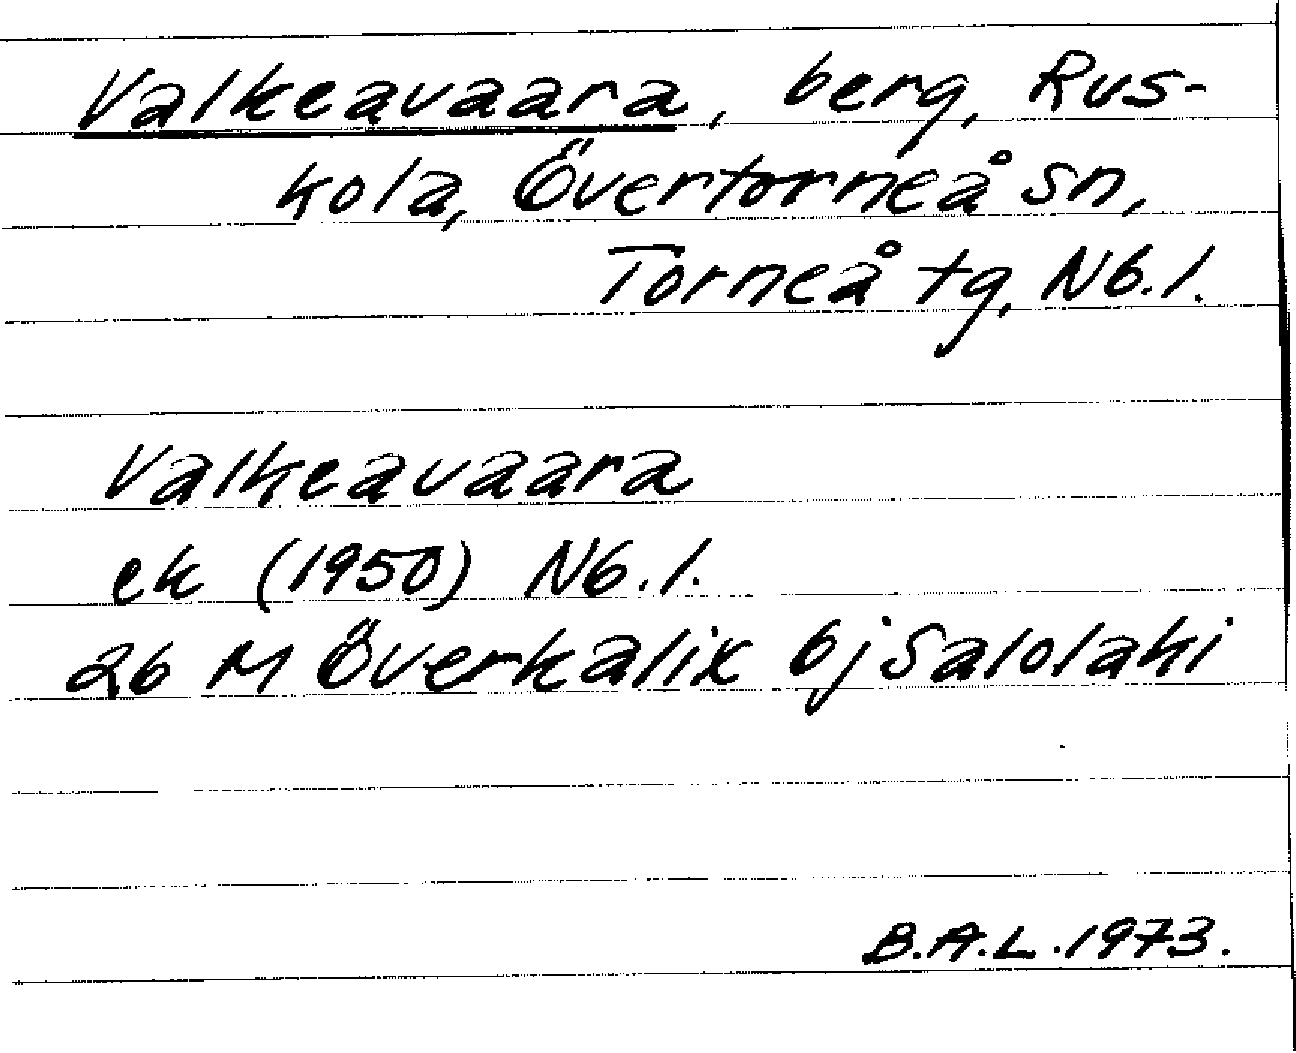 Valkeavaara, berg, Rus-
kola, Övertorneå sn,
Torneå tg, Nb. l.
Valkeavaara
ek (1950) Nb. l.
26 M Överkalix 6j Salolahi
B.A.L. 1973.